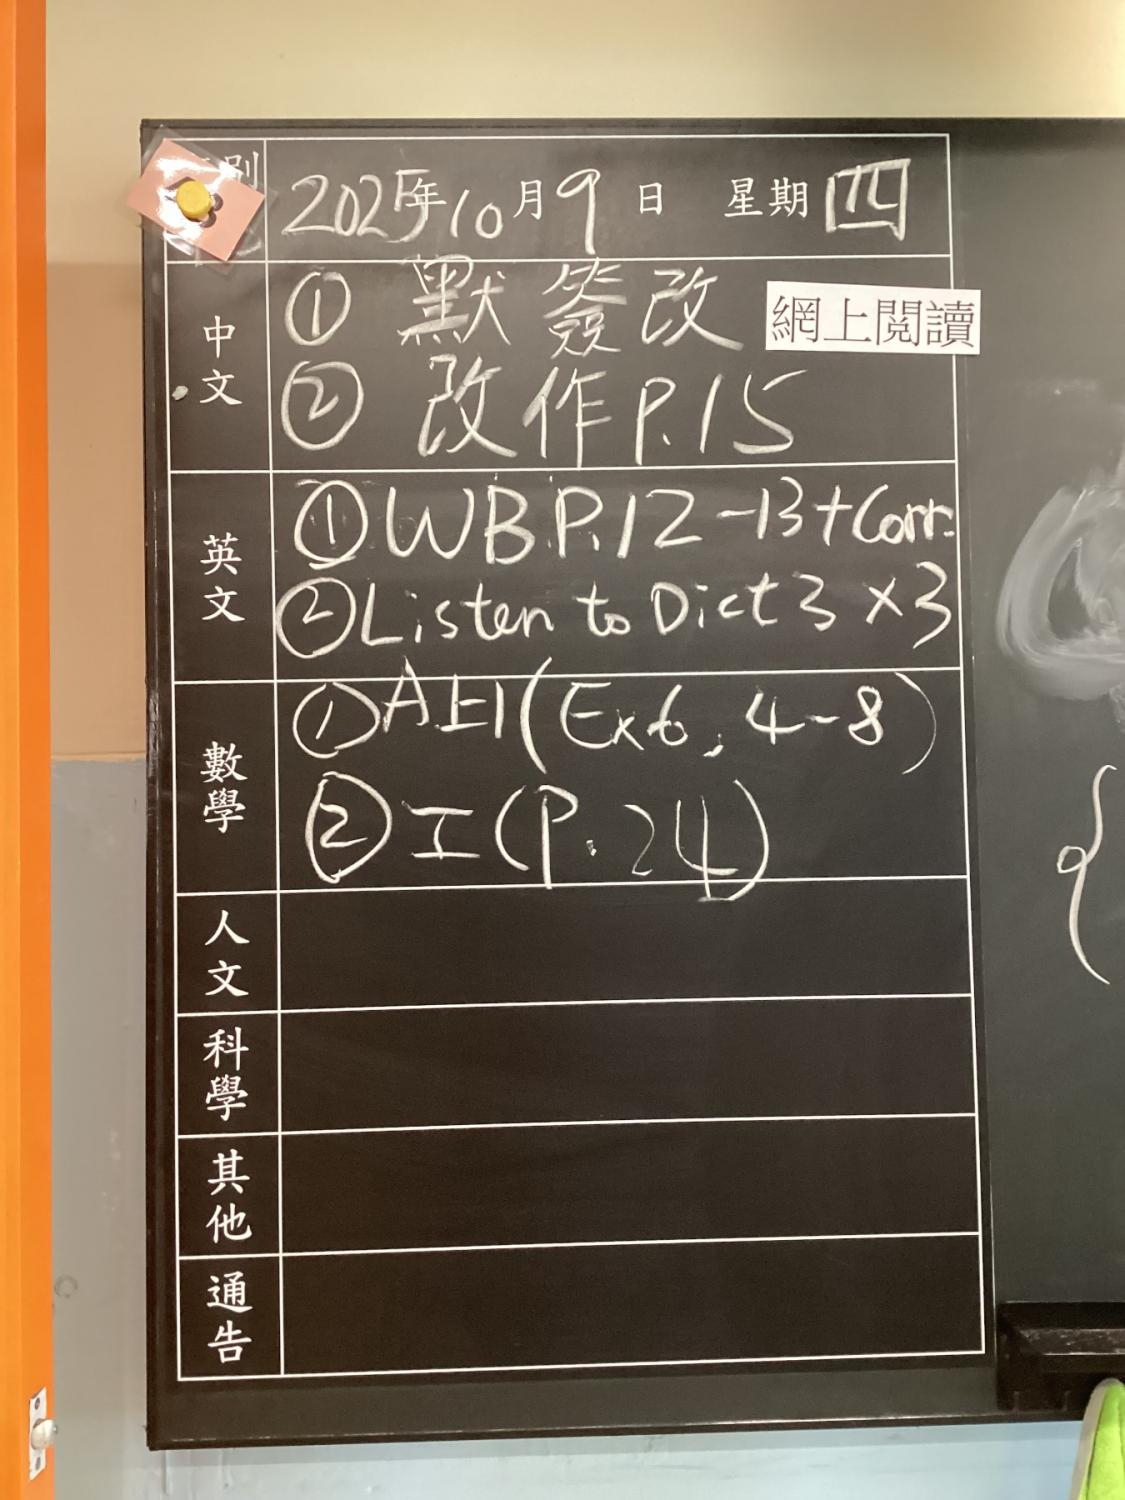 別 2025年10月9日 星期四
中文 ① 默簽改 網上閱讀
② 改作P.15
英文 ① WB P.12-13+Corr.
② Listen to Dict 3 ×3
數學 ① A上1(Ex6, 4-8)
② 工(P.24)
人文
科學
其他
通告